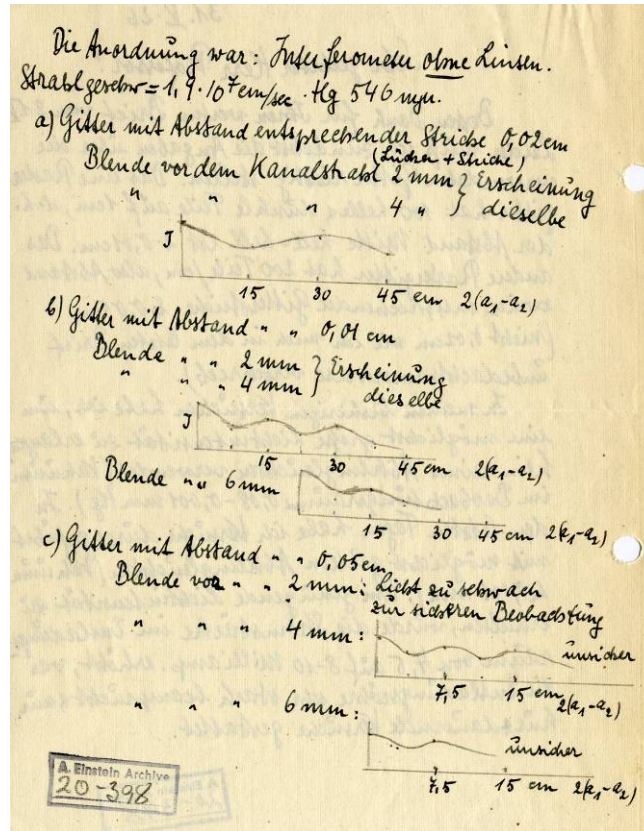 Die Anordnung war: Interferometer ohne Linsen.
Strahlgeschw = 1,9·10⁷ cm/sec · Hg 546 mµ.
a) Gitter mit Abstand entsprechender Striche 0,02 cm
(Lücken + Striche)
Blende vor dem Kanalstrahl 2 mm } Erscheinung
" " " 4 " } dieselbe
J
15 30 45 cm 2(a₁-a₂)
b) Gitter mit Abstand " " 0,01 cm
Blende " " 2 mm } Erscheinung
" " " 4 mm } dieselbe
J
15 30 45 cm 2(a₁-a₂)
Blende " " 6 mm
15 30 45 cm 2(a₁-a₂)
c) Gitter mit Abstand " " 0,05 cm
Blende vor " " 2 mm: Licht zu schwach
zur sicheren Beobachtung
" " " 4 mm: unsicher
7,5 15 cm 2(a₁-a₂)
" " " 6 mm: unsicher
7,5 15 cm 2(a₁-a₂)
A. Einstein Archive
20-398